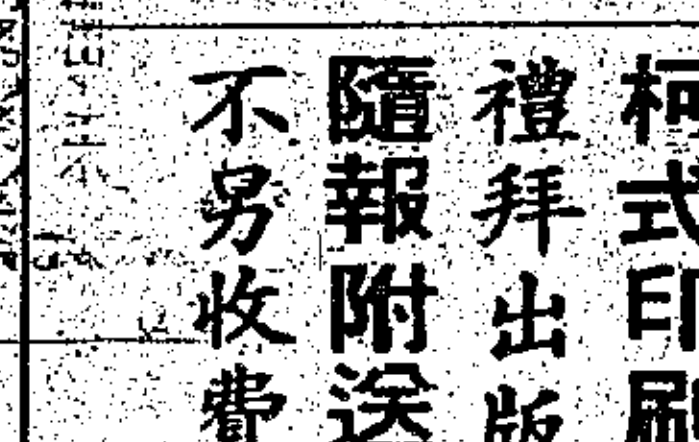 柯式印刷
禮拜出版
隨報附送
不另收費